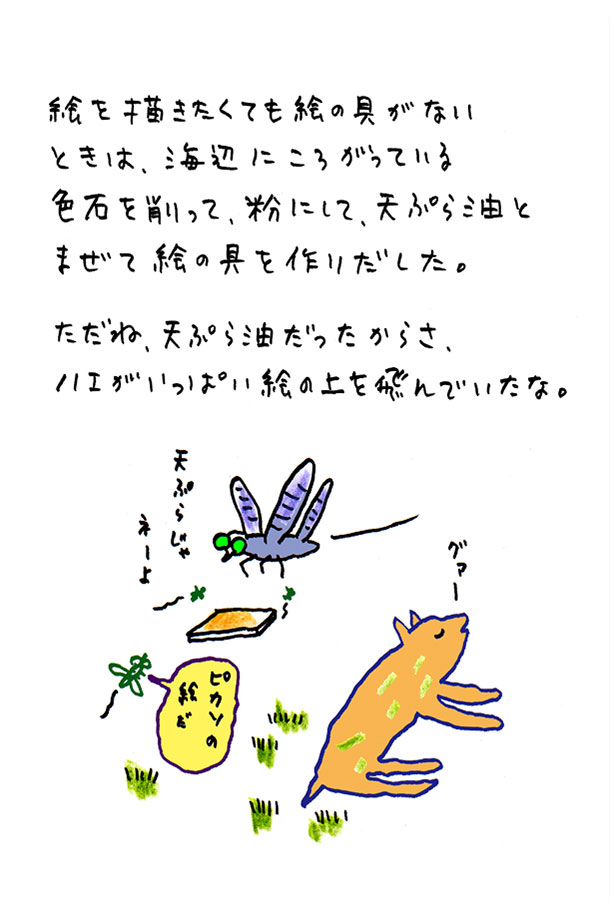 絵を描きたくても絵の具がない
ときは、海辺にころがっている
色石を削って、粉にして、天ぷら油と
まぜて絵の具を作りだした。
ただね、天ぷら油だったからさ、
ハエがいっぱい絵の上を飛んでいたな。
天ぷらじゃ
ネーよ
グァー
ピカソの
絵だ